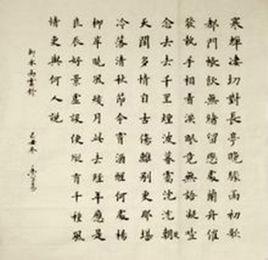 寒蟬凄切對長亭晚驟雨初歇
都門帳飲無緒留戀處蘭舟催
發執手相看淚眼竟無語凝噎
念去去千里煙波暮靄沈沈楚
天闊多情自古傷離別更那堪
冷落清秋節今宵酒醒何處楊
柳岸曉風殘月此去經年應是
良辰好景虛設便縱有千種風
情更與何人說
柳永雨霖鈴
己丑冬